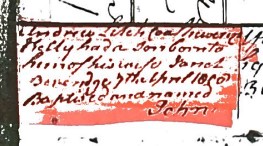 Andrew Leitch Coalhewer in
Kelly had a Son born to
him of his wife Janet
7th April 1850
Baptised and named
John